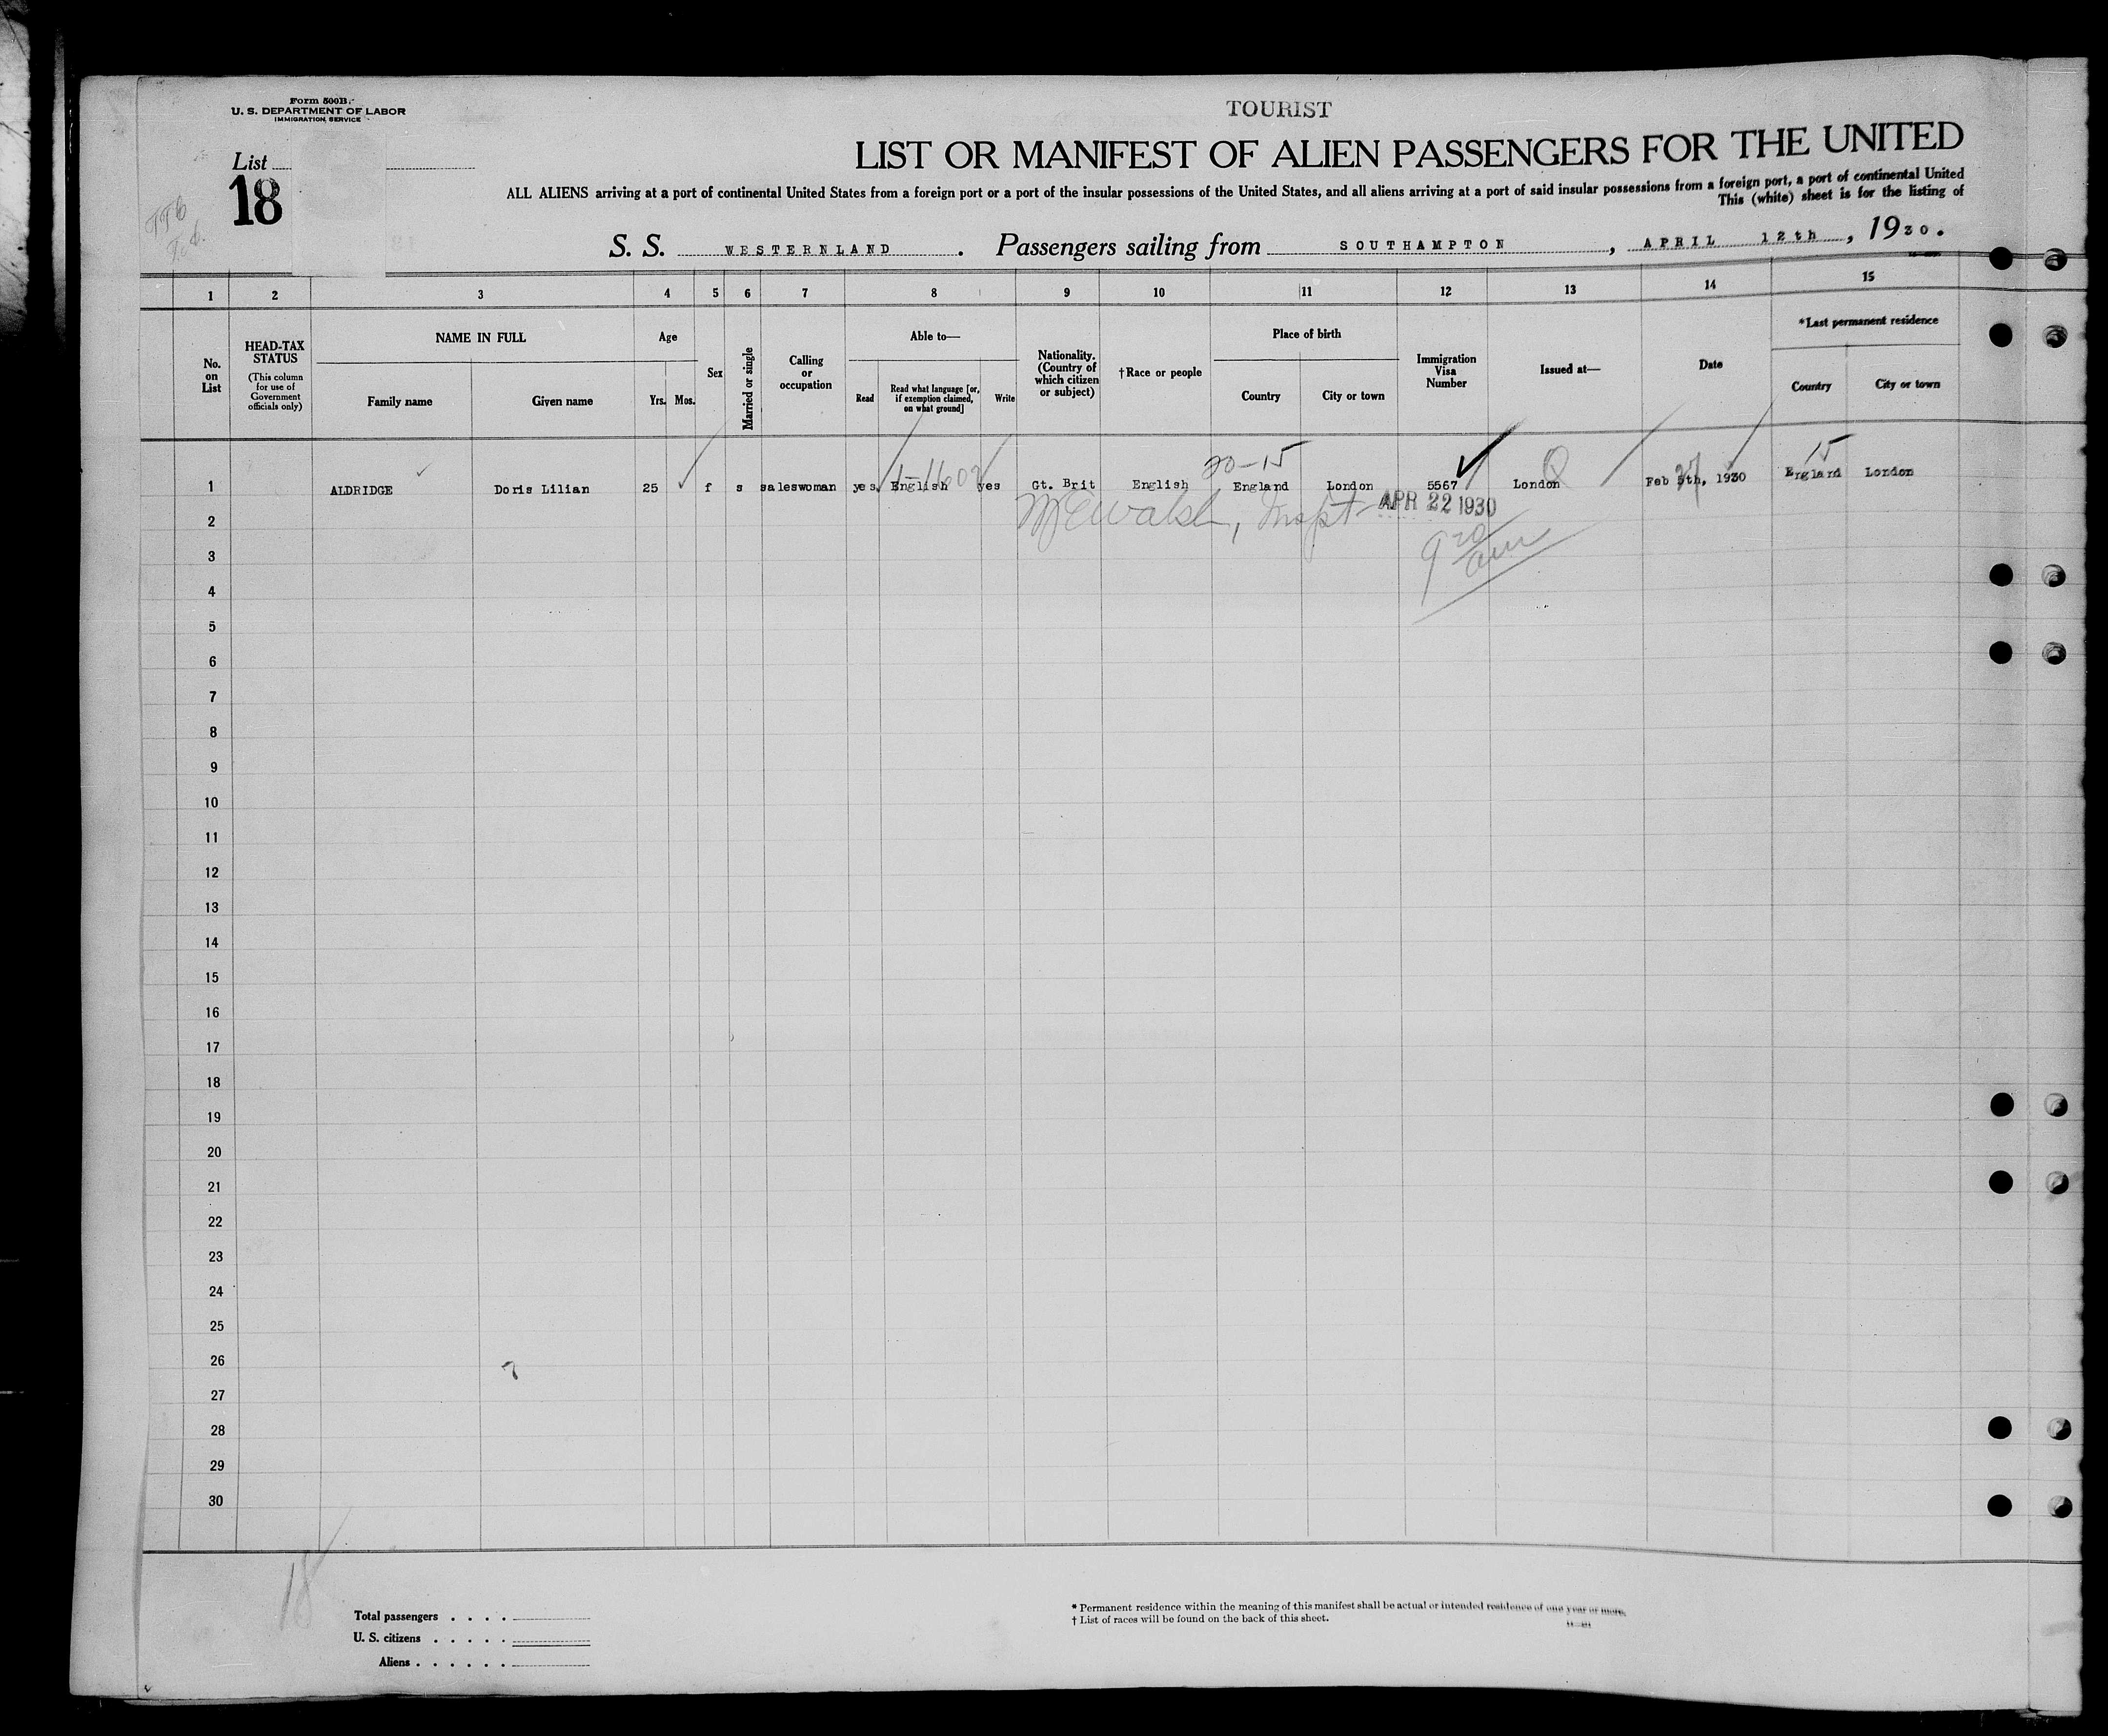 Form 500B.
U. S. DEPARTMENT OF LABOR
IMMIGRATION SERVICE
TOURIST
List
18
LIST OR MANIFEST OF ALIEN PASSENGERS FOR THE UNITED
ALL ALIENS arriving at a port of continental United States from a foreign port or a port of the insular possessions of the United States, and all aliens arriving at a port of said insular possessions from a foreign port, a port of continental United
This (white) sheet is for the listing of
S. S. WESTERNLAND. Passengers sailing from SOUTHAMPTON, APRIL 12th, 1930.
1 2 3 4 5 6 7 8 9 10 11 12 13 14 15
No. on List
HEAD-TAX STATUS
(This column for use of Government officials only)
NAME IN FULL
Family name Given name
Age
Yrs. Mos.
Sex
Married or single
Calling or occupation
Able to—
Read Read what language [or, if exemption claimed, on what ground] Write
Nationality. (Country of which citizen or subject)
†Race or people
Place of birth
Country City or town
Immigration Visa Number
Issued at—
Date
*Last permanent residence
Country City or town
20-15 15
1 ALDRIDGE Doris Lilian 25 f s saleswoman yes English yes Gt. Brit English England London 5567 London Feb 27th, 1930 England London
Walsh, Inspt APR 22 1930
2
9 20 am
3
4
5
6
7
8
9
10
11
12
13
14
15
16
17
18
19
20
21
22
23
24
25
26
27
28
29
30
18
Total passengers . . . .
U. S. citizens . . . . .
Aliens . . . . . .
* Permanent residence within the meaning of this manifest shall be actual or intended residence of one year or more.
† List of races will be found on the back of this sheet.